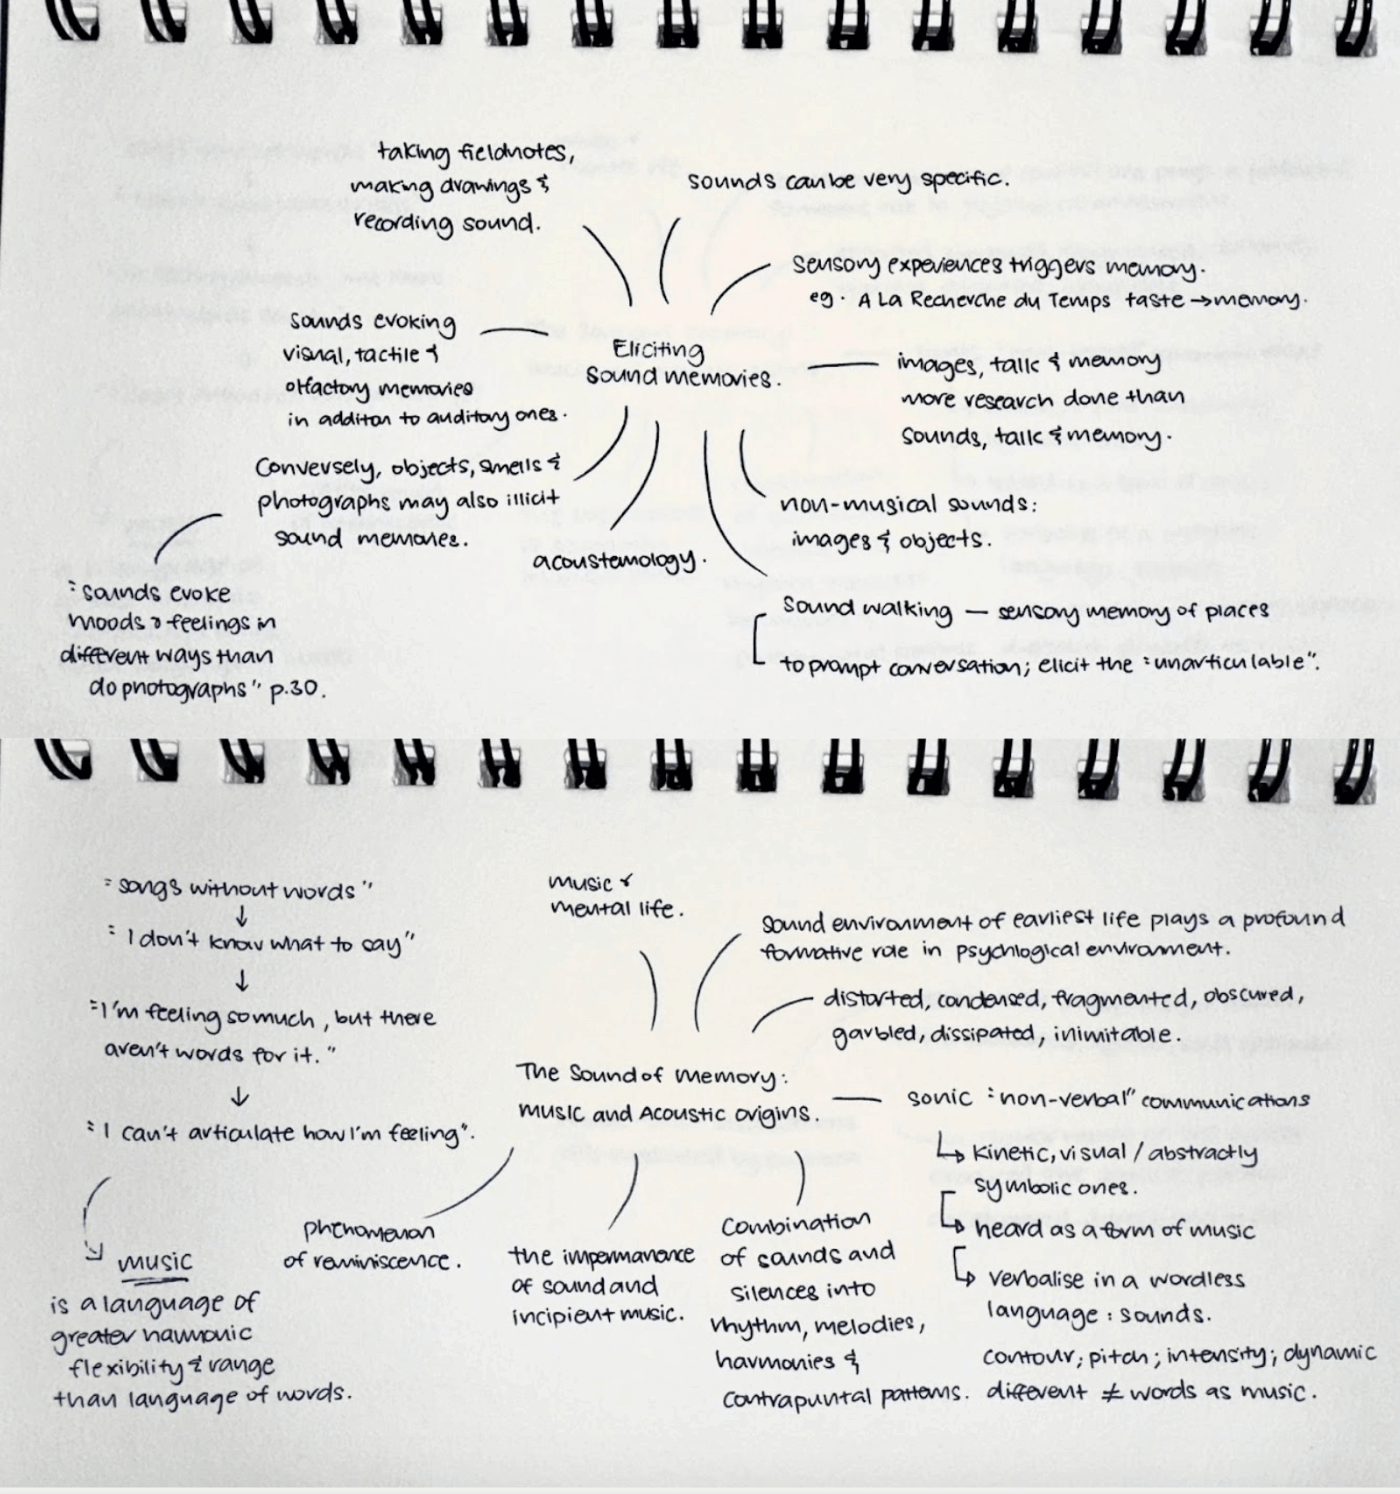 taking fieldnotes,
making drawings &
recording sound.
sounds can be very specific.
sensory experiences triggers memory.
eg. A La Recherche du Temps taste → memory.
sounds evoking
visual, tactile &
olfactory memories
in additon to auditory ones.
Eliciting
Sound memories.
images, talk & memory
more research done than
sounds, talk & memory.
Conversely, objects, smells &
photographs may also illicit
sound memories.
non-musical sounds:
images & objects.
acoustemology.
"sounds evoke
moods & feelings in
different ways than
do photographs" p.30.
Sound walking — sensory memory of places
to prompt conversation; elicit the "unarticulable".
"songs without words"
↓
"I don't know what to say"
↓
"I'm feeling so much, but there
aren't words for it."
↓
"I can't articulate how I'm feeling".
music
is a language of
greater harmonic
flexibility & range
than language of words.
music &
mental life.
Sound environment of earliest life plays a profound
formative role in psychlogical environment.
distorted, condensed, fragmented, obscured,
garbled, dissipated, inimitable.
The Sound of Memory:
Music and Acoustic origins.
sonic "non-verbal" communications
↳ kinetic, visual / abstractly
symbolic ones.
↳ heard as a form of music
↳ verbalise in a wordless
language : sounds.
contour; pitch; intensity; dynamic
different ≠ words as music.
phenomenon
of reminiscence.
the impermanence
of sound and
incipient music.
Combination
of sounds and
silences into
rhythm, melodies,
harmonies &
contrapuntal patterns.